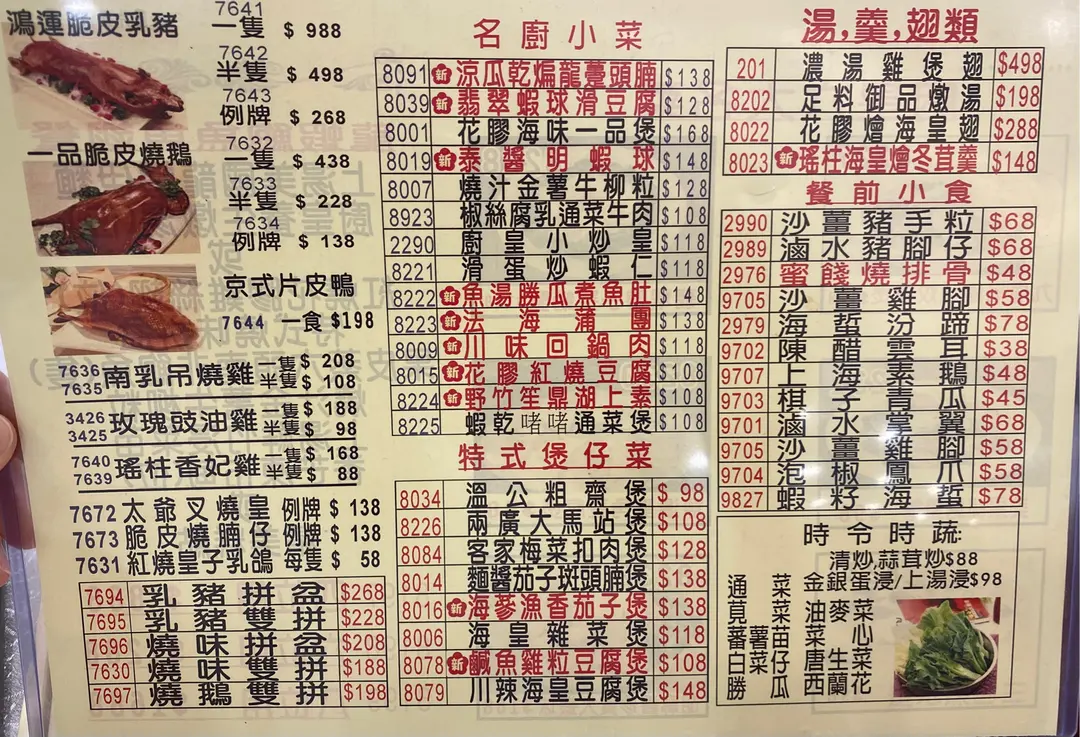 鴻運脆皮乳豬
7641
一隻 $ 988
7642
半隻 $ 498
7643
例牌 $ 268
一品脆皮燒鵝
7632
一隻 $ 438
7633
半隻 $ 228
7634
例牌 $ 138
京式片皮鴨
7644 一食 $198
7636 7635 南乳吊燒雞 一隻 $ 208 半隻 $ 108
3426 3425 玫瑰豉油雞 一隻 $ 188 半隻 $ 98
7640 7639 瑤柱香妃雞 一隻 $ 168 半隻 $ 88
7672 太爺叉燒皇 例牌 $ 138
7673 脆皮燒腩仔 例牌 $ 138
7631 紅燒皇子乳鴿 每隻 $ 58
7694 乳豬拼盆 $268
7695 乳豬雙拼 $228
7696 燒味拼盆 $208
7630 燒味雙拼 $188
7697 燒鵝雙拼 $198
名廚小菜
8091 新 涼瓜乾煸龍躉頭腩 $138
8039 新 翡翠蝦球滑豆腐 $128
8001 花膠海味一品煲 $168
8019 新 泰醬明蝦球 $148
8007 燒汁金薯牛柳粒 $128
8923 椒絲腐乳通菜牛肉 $108
2290 廚皇小炒皇 $118
8221 滑蛋炒蝦仁 $118
8222 新 魚湯勝瓜煮魚肚 $148
8223 新 法海蒲團 $138
8009 新 川味回鍋肉 $118
8015 新 花膠紅燒豆腐 $108
8224 新 野竹笙鼎湖上素 $108
8225 蝦乾啫啫通菜煲 $108
特式煲仔菜
8034 溫公粗齋煲 $ 98
8226 兩廣大馬站煲 $108
8084 客家梅菜扣肉煲 $128
8014 麵醬茄子斑頭腩煲 $138
8016 新 海蔘漁香茄子煲 $138
8006 海皇雜菜煲 $118
8078 新 鹹魚雞粒豆腐煲 $108
8079 川辣海皇豆腐煲 $148
湯,羹,翅類
201 濃湯雞煲翅 $498
8202 足料御品燉湯 $198
8022 花膠燴海皇翅 $288
8023 新 瑤柱海皇燴冬茸羹 $148
餐前小食
2990 沙薑豬手粒 $68
2989 滷水豬腳仔 $68
2976 蜜餞燒排骨 $48
9705 沙薑雞腳 $58
2979 海蜇汾蹄 $78
9702 陳醋雲耳 $38
9707 上海素鵝 $48
9703 棋子青瓜 $45
9701 滷水掌翼 $68
9705 沙薑雞腳 $58
9704 泡椒鳳爪 $58
9827 蝦籽海蜇 $78
時令時蔬:
清炒,蒜茸炒$88
金銀蛋浸/上湯浸$98
通菜 油麥菜
莧菜 菜心
蕃薯苗 唐生菜
白菜仔 西蘭花
勝瓜